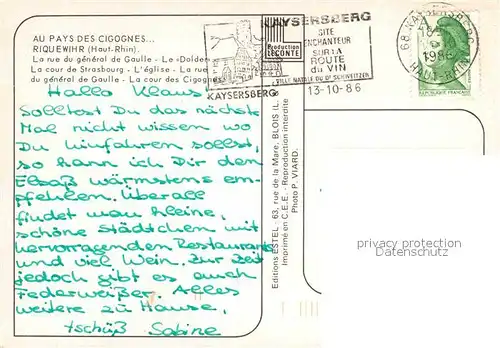 AU PAYS DES CIGOGNES...
RIQUEWIHR (Haut-Rhin).
La rue du général de Gaulle - Le «Dolder»
La cour de Strasbourg - L'église - La rue
du général de Gaulle - La cour des Cigognes
KAYSERSBERG
SITE
ENCHANTEUR
SUR LA
ROUTE
du VIN
VILLE NATALE DU Dr SCHWEITZER
Production
LECONTE
KAYSERSBERG
13-10-86
68 KAYSERSBERG
1986
HAUT-RHIN
Hallo Klaus
Solltest Du das nächste
Mal nicht wissen wo
Du hinfahren sollst,
so kann ich Dir den
Elsaß wärmstens em-
pfehlen. Überall
findet man kleine,
schöne Städtchen mit
hervorragenden Restaurants
und viel Wein. Zur Zeit
jedoch gibt es auch
Federweißer. Alles
weitere zu Hause,
tschüß Sabine
Editions ESTEL - 63, rue de la Mare, BLOIS (L.
Imprimé en C.E.E. - Reproduction interdite
Photo P. VIARD.
privacy protection
watermark